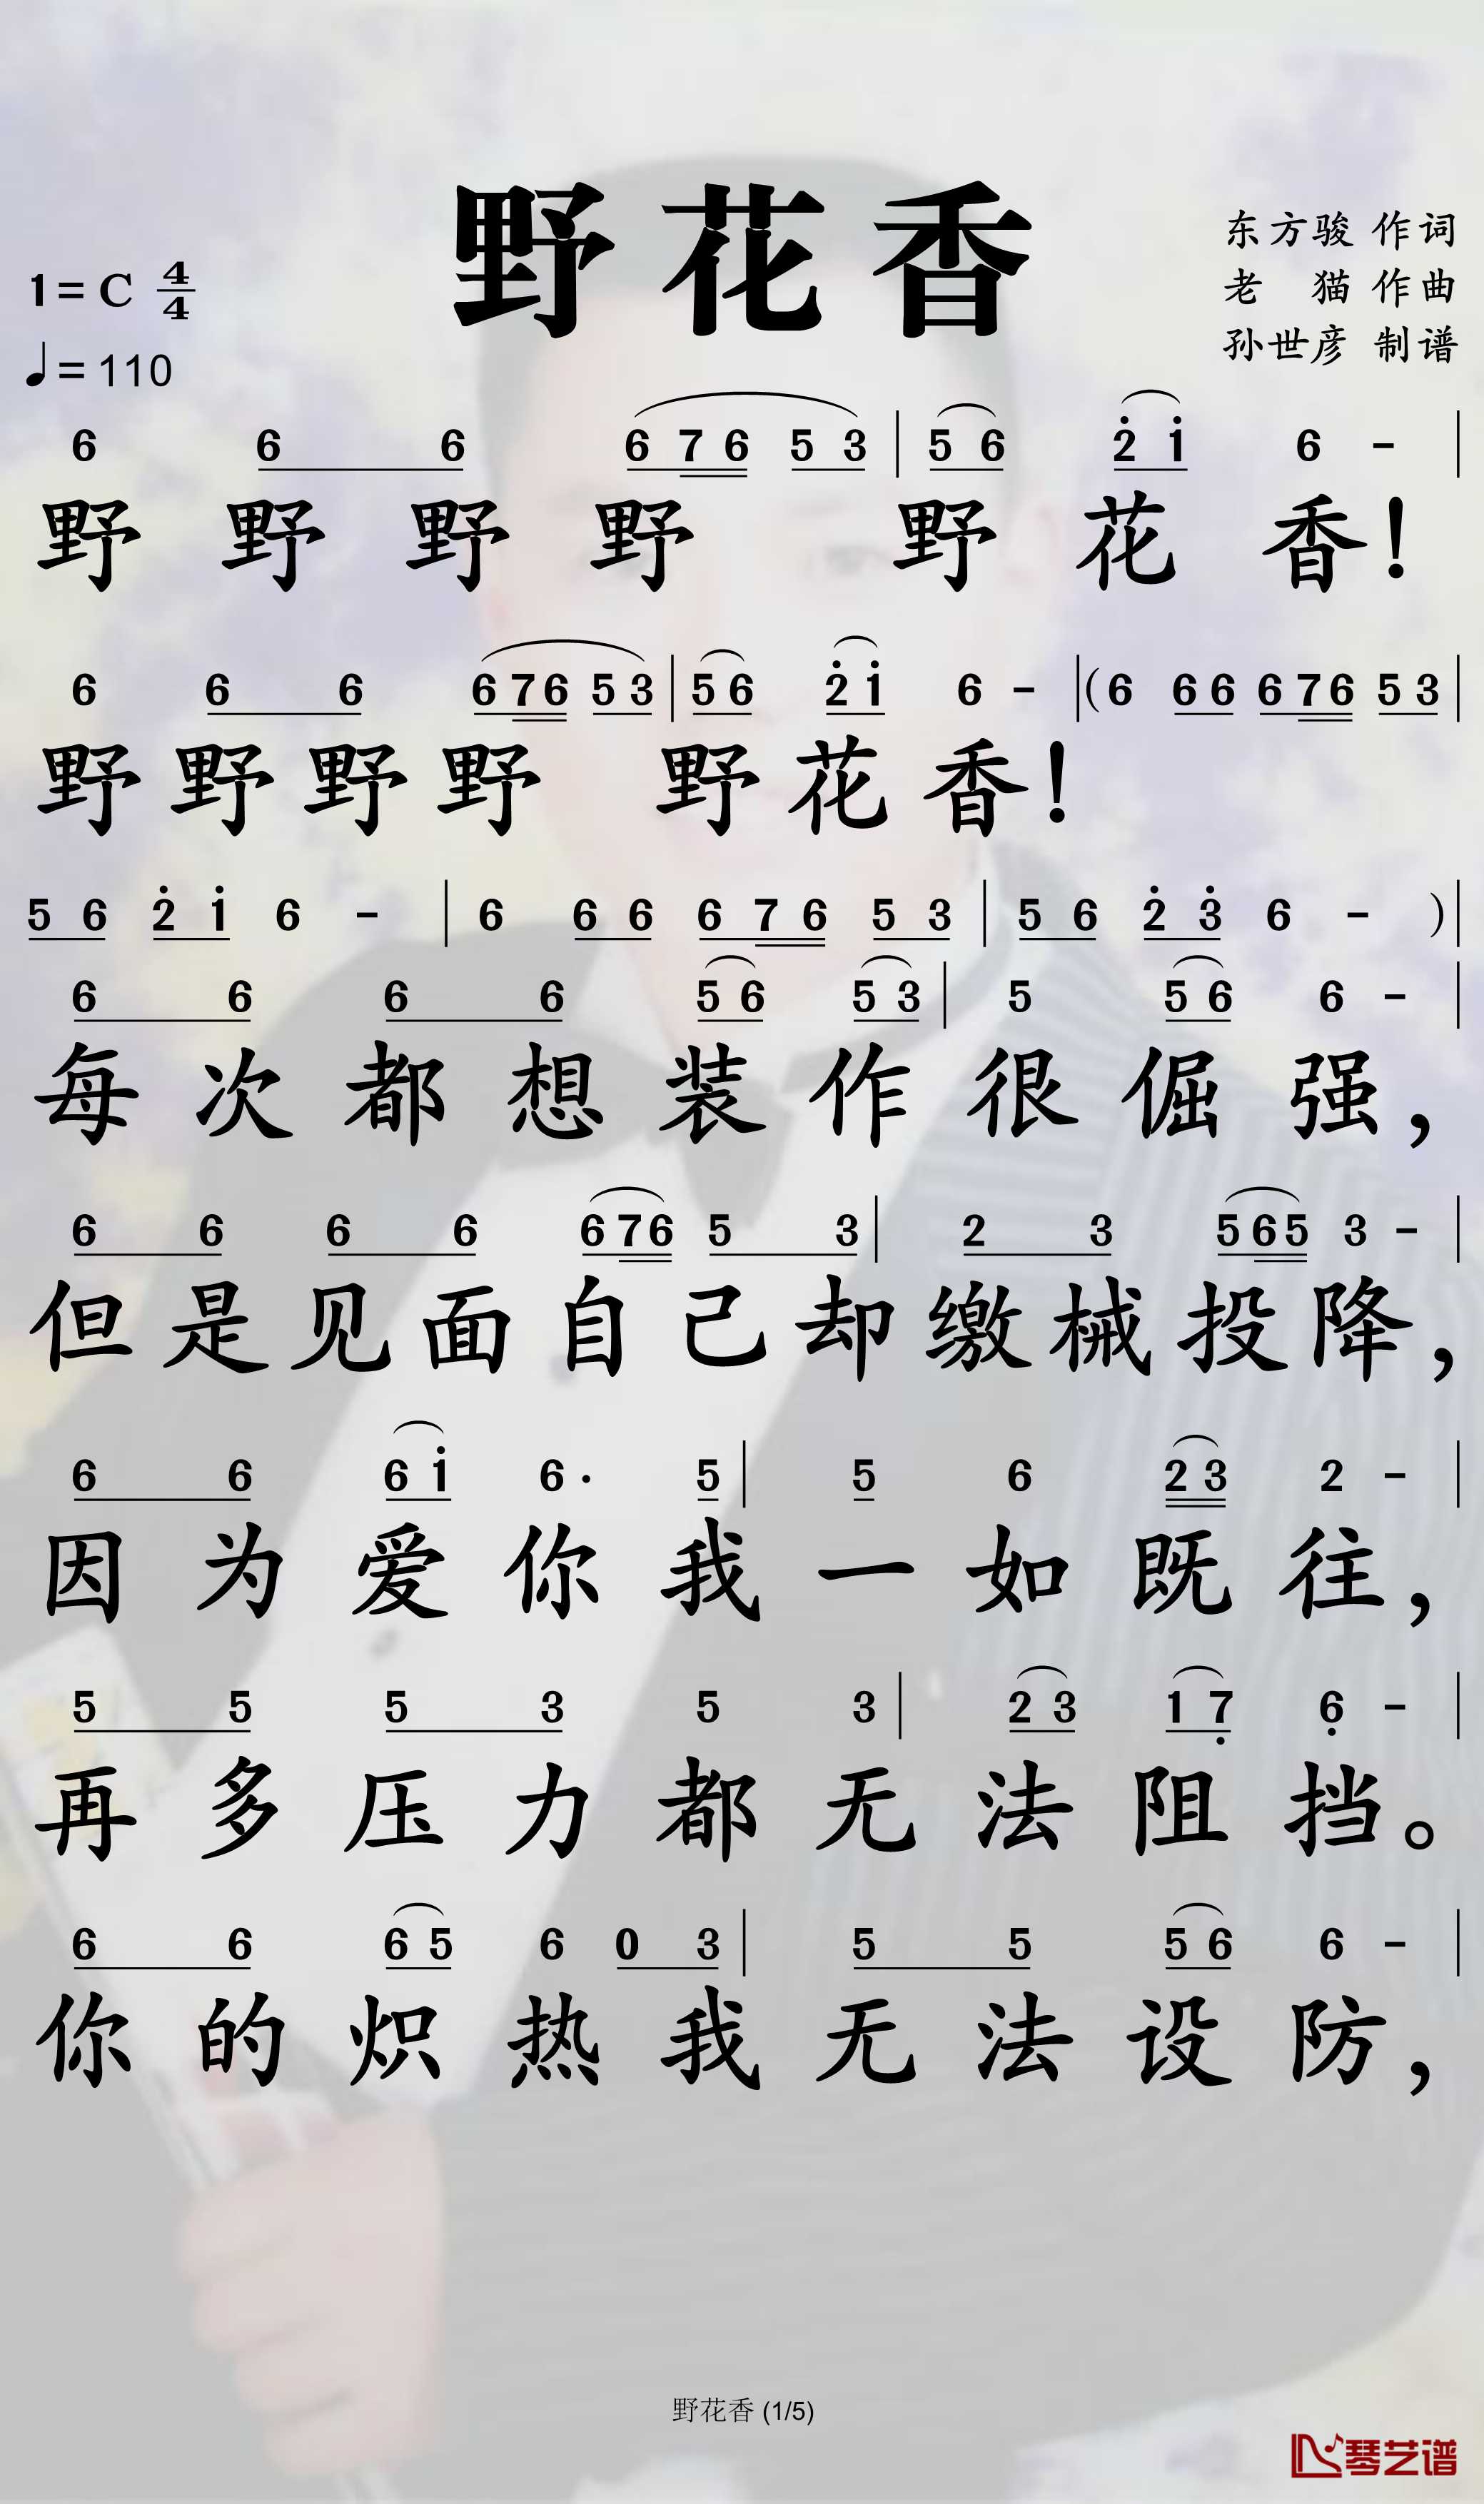 野花香
东方骏 作词
老 猫 作曲
孙世彦 制谱
1=C 4/4
♩=110
6 6 6 6 7 6 5 3 | 5 6 2̇ 1̇ 6 - |
野 野 野 野 野 花 香！
6 6 6 6 7 6 5 3 | 5 6 2̇ 1̇ 6 - |( 6 6 6 6 7 6 5 3 |
野 野 野 野 野 花 香！
5 6 2̇ 1̇ 6 - | 6 6 6 6 7 6 5 3 | 5 6 2̇ 3̇ 6 - )|
6 6 6 6 5 6 5 3 | 5 5 6 6 - |
每 次 都 想 装 作 很 倔 强，
6 6 6 6 6 7 6 5 3 | 2 3 5 6 5 3 - |
但 是 见 面 自 己 却 缴 械 投 降，
6 6 6 1̇ 6 · 5 | 5 6 2 3 2 - |
因 为 爱 你 我 一 如 既 往，
5 5 5 3 5 3 | 2 3 1 7̣ 6̣ - |
再 多 压 力 都 无 法 阻 挡。
6 6 6 5 6 0 3 | 5 5 5 6 6 - |
你 的 炽 热 我 无 法 设 防，
野花香 (1/5)
琴艺谱